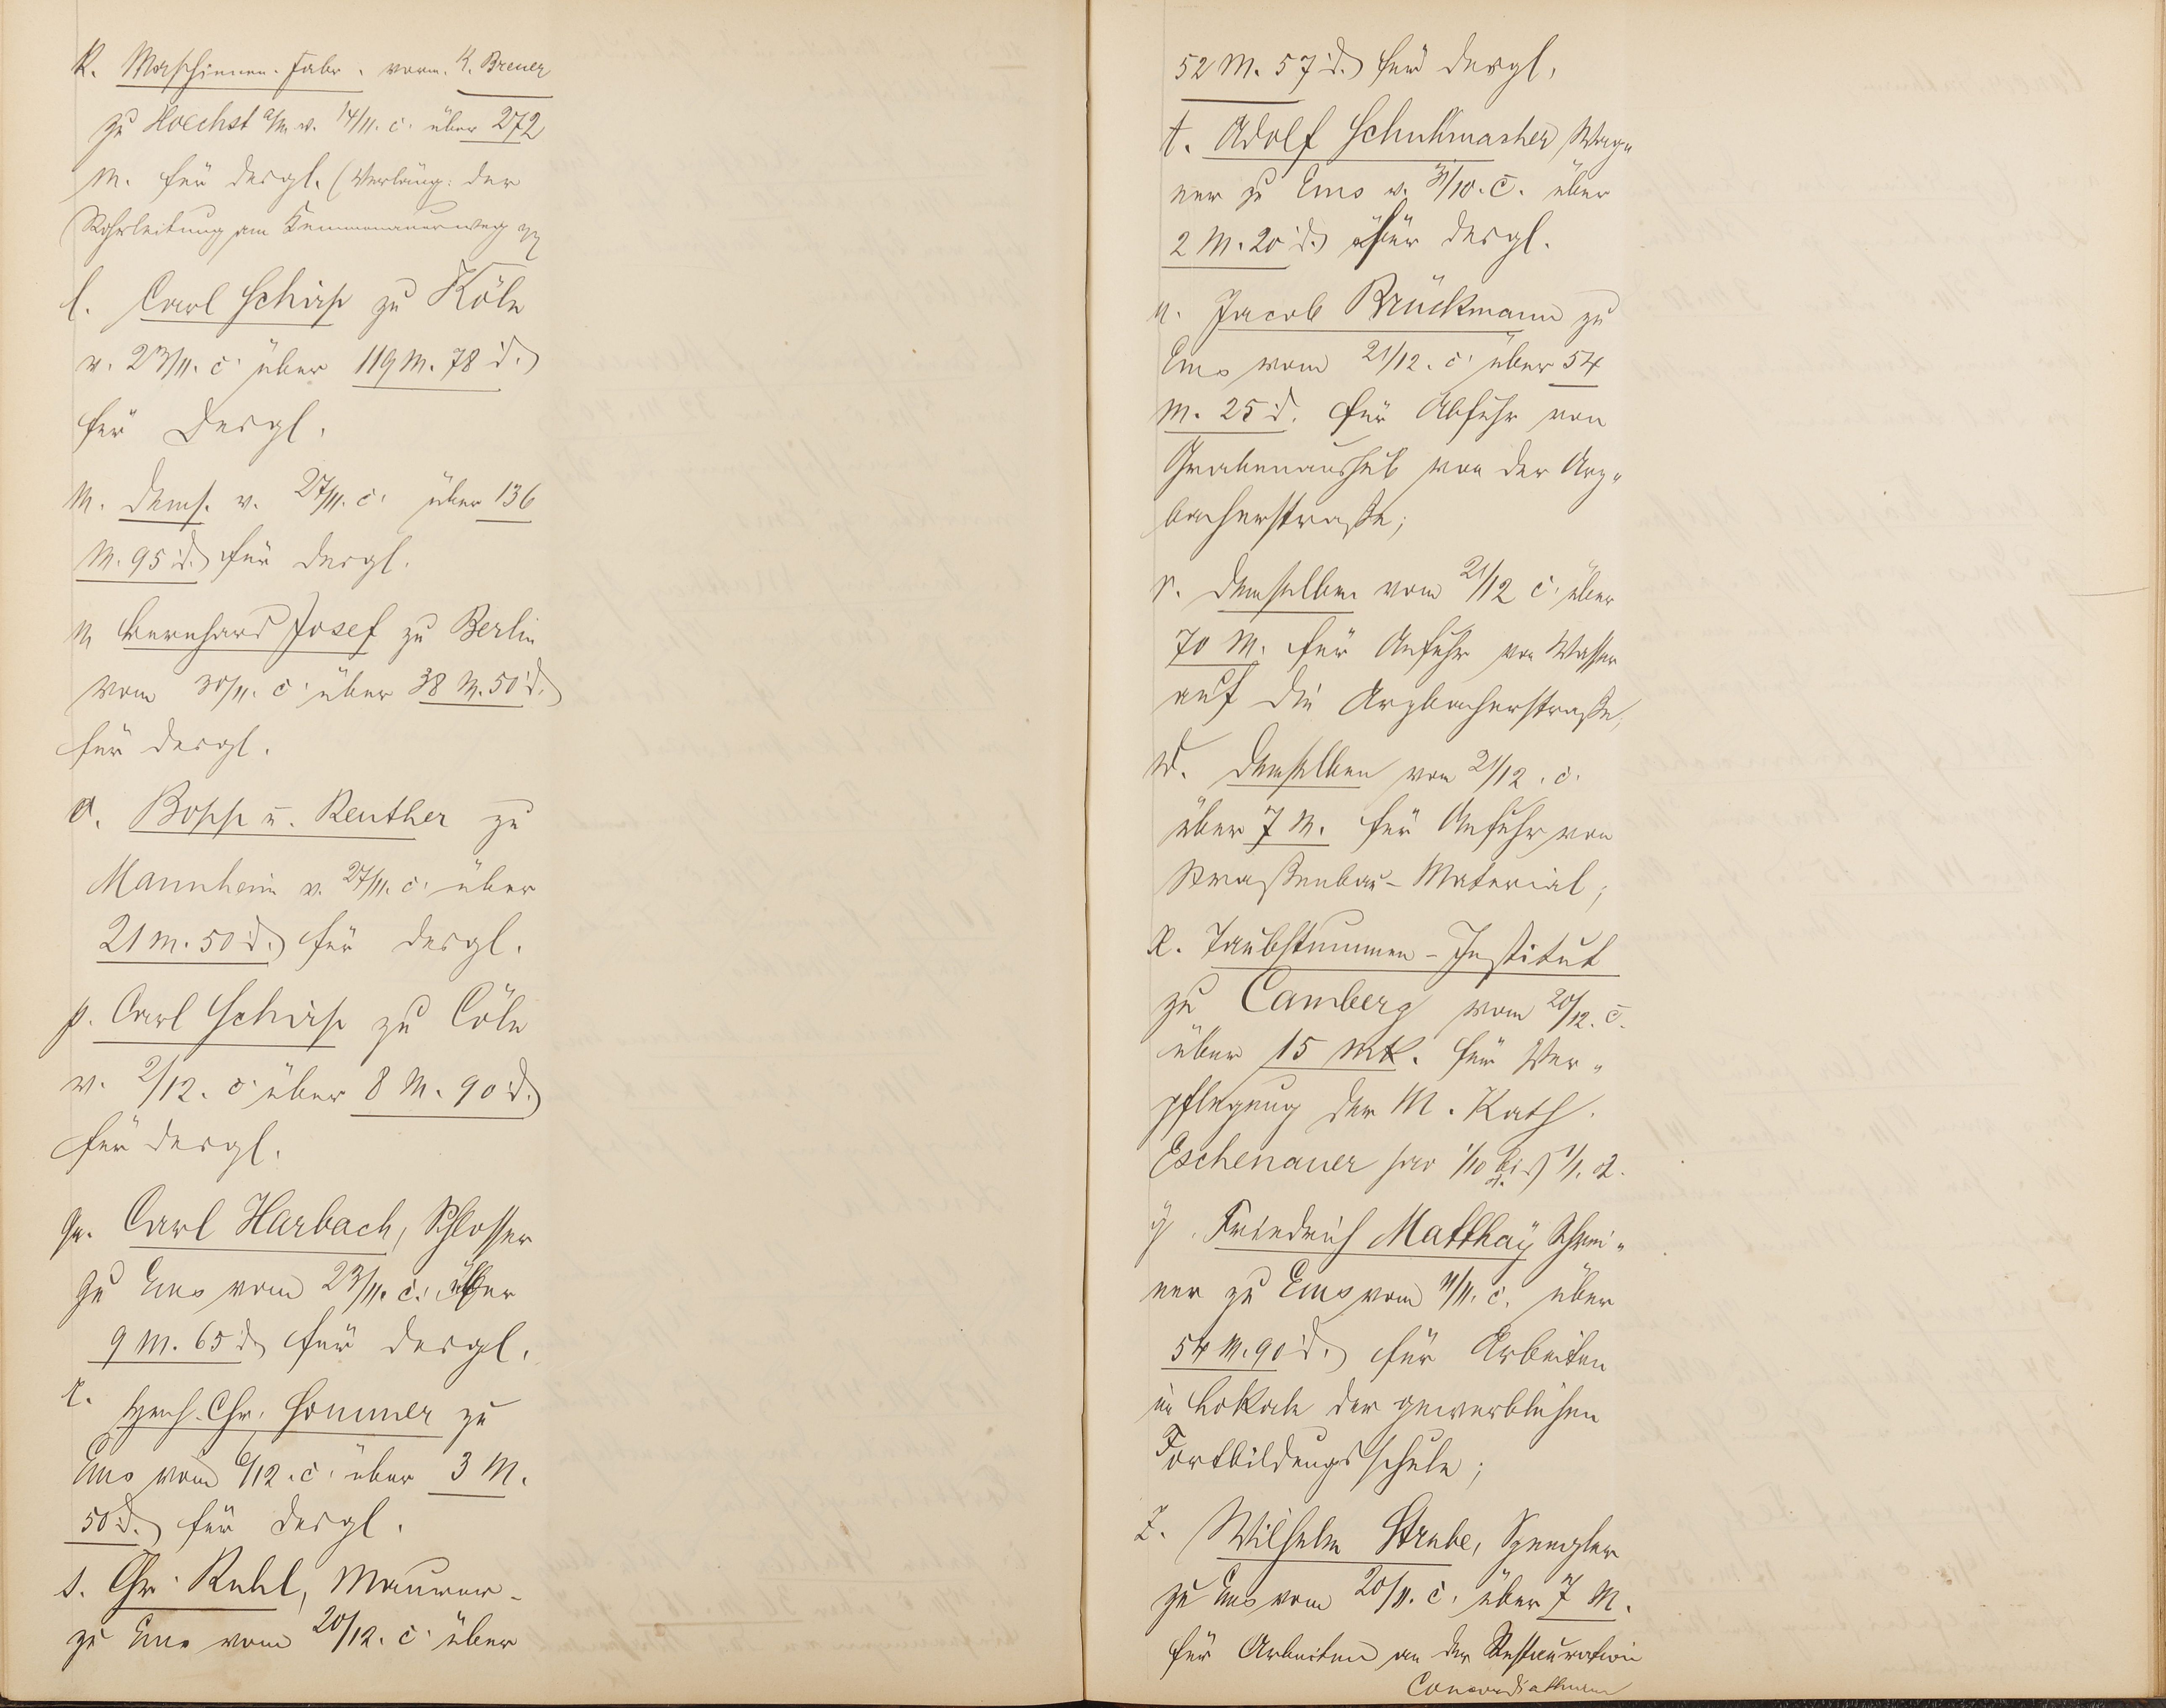 k. Maschinen-Fabr. vorm. K. Breuer
zu Hoechst a/M. v. 14/11. c. über 272
M. für desgl. (Verläng. der
Rohrleitung am Kemmenauerweg
l. Carl Schirp zu Köln
v. 23/11. c. über 119 M. 78 d.
für desgl.
m. dems. v. 27/11. c. über 136
M. 95 d. für desgl.
n Bernhard Josef zu Berlin
vom 30/11. c. über 38 M. 50 d.
für desgl.
o. Bopp u. Reuther zu
Mannheim v. 27/11. c. über
21 M. 50 d. für desgl.
p. Carl Schirp zu Cöln
v. 2/12. c. über 8 M. 90 d.
für desgl.
q. Carl Harbach, Schlosser
zu Ems vom 23/11. c. über
9 M. 65 d. für desgl.
r. Chr. Sommer zu
Ems vom 6/12. c. über 3 M.
50 d. für desgl.
s. Chr. Ruhl, Maurer-
zu Ems vom 20/12. c. über
52 M. 57 d. für desgl.
t. Adolf Schuhmacher, Wag„
ner zu Ems v. 31/10. c. über
2 M. 20 d. für desgl.
u. Jacob Brückmann zu
Ems vom 21/12. c. über 54
M. 25 d. für Abfuhr von
Grabenaushub von der Arz„
bacherstraße;
v. demselben vom 21/12 c. über
70 M. für Anfuhr von Wasser
auf die Arzbacherstraße,
w. demselben von 21/12. c.
über 7 M. für Anfuhr von
Straßenbau-Material;
x. Taubstummen-Institut
zu Camberg vom 20/12. c.
über 15 Mk. für Ver„
pflegung der M. Kath.
Eschenauer pro 1/10 bis 1/1.
y. Friedrich Matthäy Schrei„
ner zu Ems vom 11/11. c. über
54 M. 90 d. für Arbeiten
im Lokale der gewerblichen
Fortbildungsschule;
z. Wilhelm Strebe, Spengler
zu Ems vom 20/11. c. über 7 M.
für Arbeiten an der Restauration
Concordiathurm